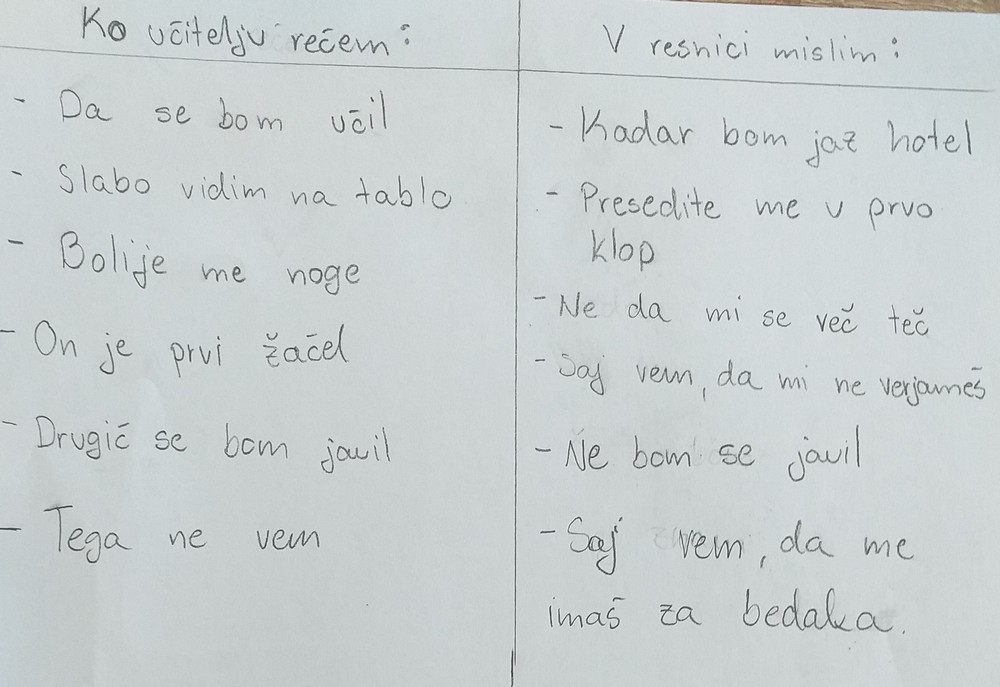 Ko učitelju rečem:
- Da se bom učil
- Slabo vidim na tablo
- Bolije me noge
- On je prvi žačel
- Drugič se bom javil
- Tega ne vem
V resnici mislim:
- Kadar bom jaz hotel
- Presedite me v prvo
klop
- Ne da mi se več teč
- Saj vem, da mi ne verjameš
- Ne bom se javil
- Saj vem, da me
imaš za bedaka.